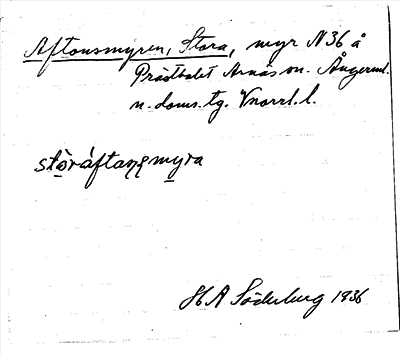 Aftonsmyren, Stora, myr N36 å
Prästbolet Arnäs sn. Ångerml.
n. doms. tg. Vnorrl. l.
stòráftaŋsmyra
H A Söderberg 1936